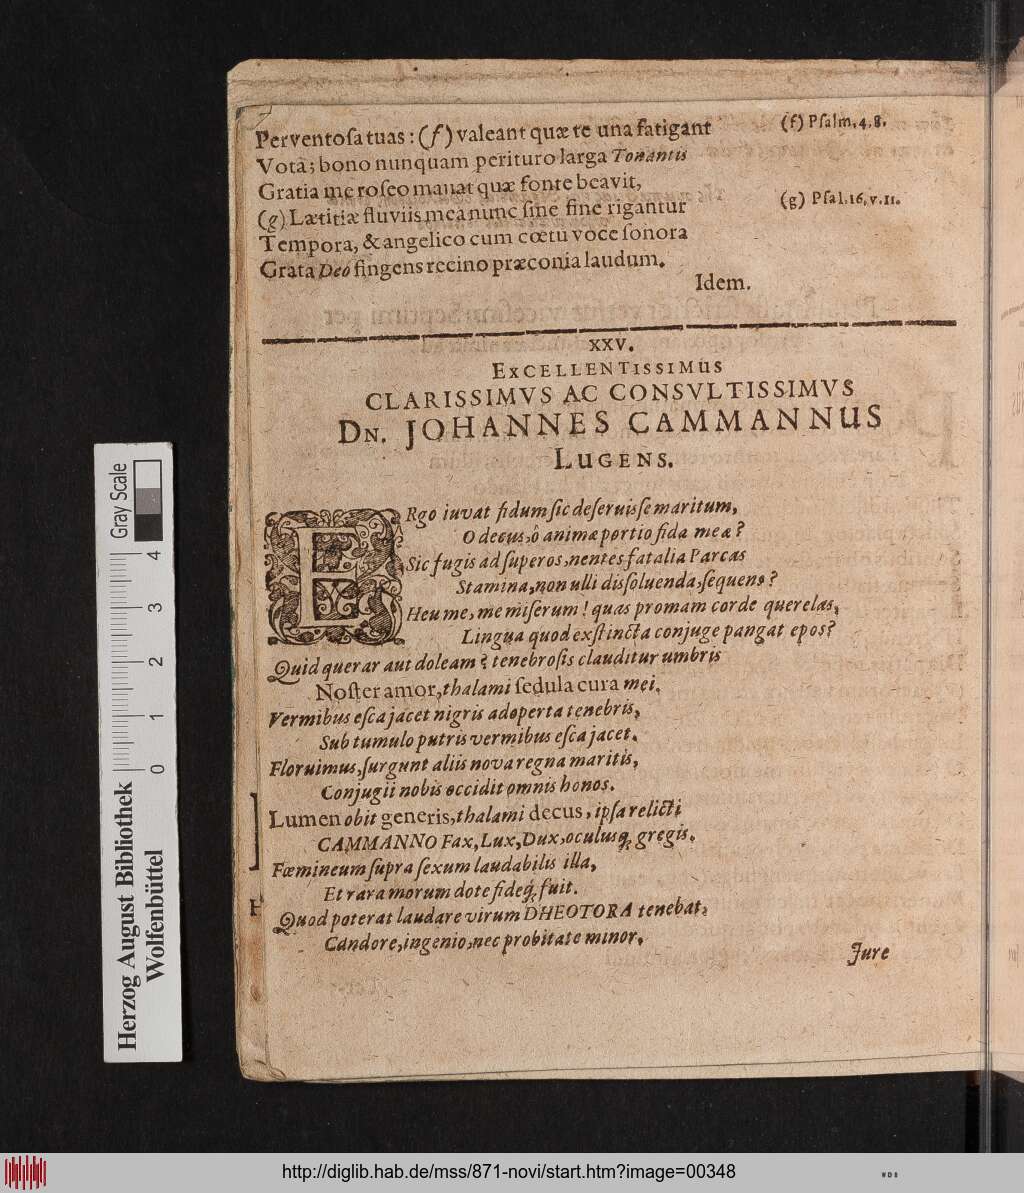 Perventosa tuas: (f) valeant quæ te una fatigant (f) Psalm. 4. 8.
Vota; bono nunquam perituro larga Tonantis
Gratia me roseo manat quæ fonte beavit,
(g) Lætitiæ fluviis mea nunc sine fine rigantur (g) Psal. 16. v. 11.
Tempora, & angelico cum cœtu voce sonora
Grata Deo fingens recino præconia laudum.
Idem.
XXV.
EXCELLENTISSIMUS
CLARISSIMVS AC CONSVLTISSIMVS
DN. JOHANNES CAMMANNUS
LUGENS.
ERgo iuvat fidum sic deseruisse maritum,
O decus, ô animæ portio fida meæ?
Sic fugis ad superos, nentes fatalia Parcas
Stamina, non ulli dissoluenda, sequens?
Heu me, me miserum! quas promam corde querelas,
Lingua quod exstincta conjuge pangat epos?
Quid querar aut doleam? tenebrosis clauditur umbris
Noster amor, thalami sedula cura mei.
Vermibus esca jacet nigris adoperta tenebris,
Sub tumulo putris vermibus esca jacet.
Floruimus, surgunt aliis nova regna maritis,
Conjugii nobis occidit omnis honos.
Lumen obit generis, thalami decus, ipsa relicti
CAMMANNO Fax, Lux, Dux, oculusq; gregis.
Fœmineum supra sexum laudabilis illa,
Et rara morum dote fideq; fuit.
Quod poterat laudare virum DHEOTORA tenebat,
Candore, ingenio, nec probitate minor,
Jure
Gray Scale
4
3
2
1
0
Herzog August Bibliothek
Wolfenbüttel
http://diglib.hab.de/mss/871-novi/start.htm?image=00348